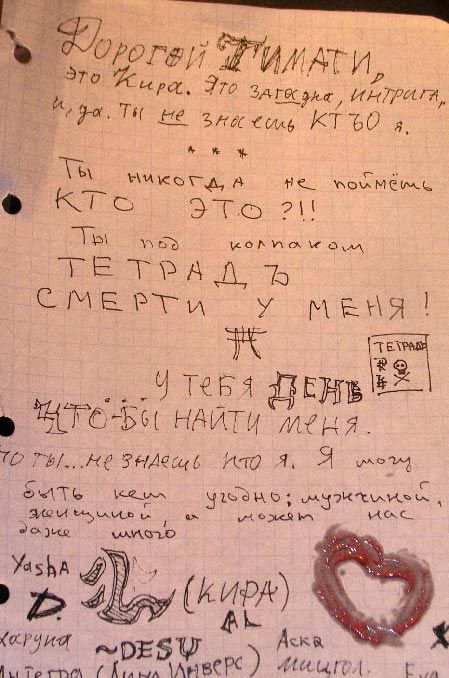 Дорогой Тимати,
это Кира. Это загадка, интрига,
и, да. ты не знаешь КТЪО я.
* * *
Ты никогда не поймёшь
КТО ЭТО?!!
Ты под колпаком
ТЕТРАДЪ
СМЕРТИ У МЕНЯ!
ТЕТРАДЬ
У тебя ДЕНЬ
ЧТО-БЫ НАЙТИ меня.
но ты... не знаешь кто я. Я могу
быть кем угодно: мужчиной,
женщиной, а может нас
даже много
YashA
L (КИРА)
D.
AL
Харуна
~DESU
Аска
Интегра (Лина Инверс)